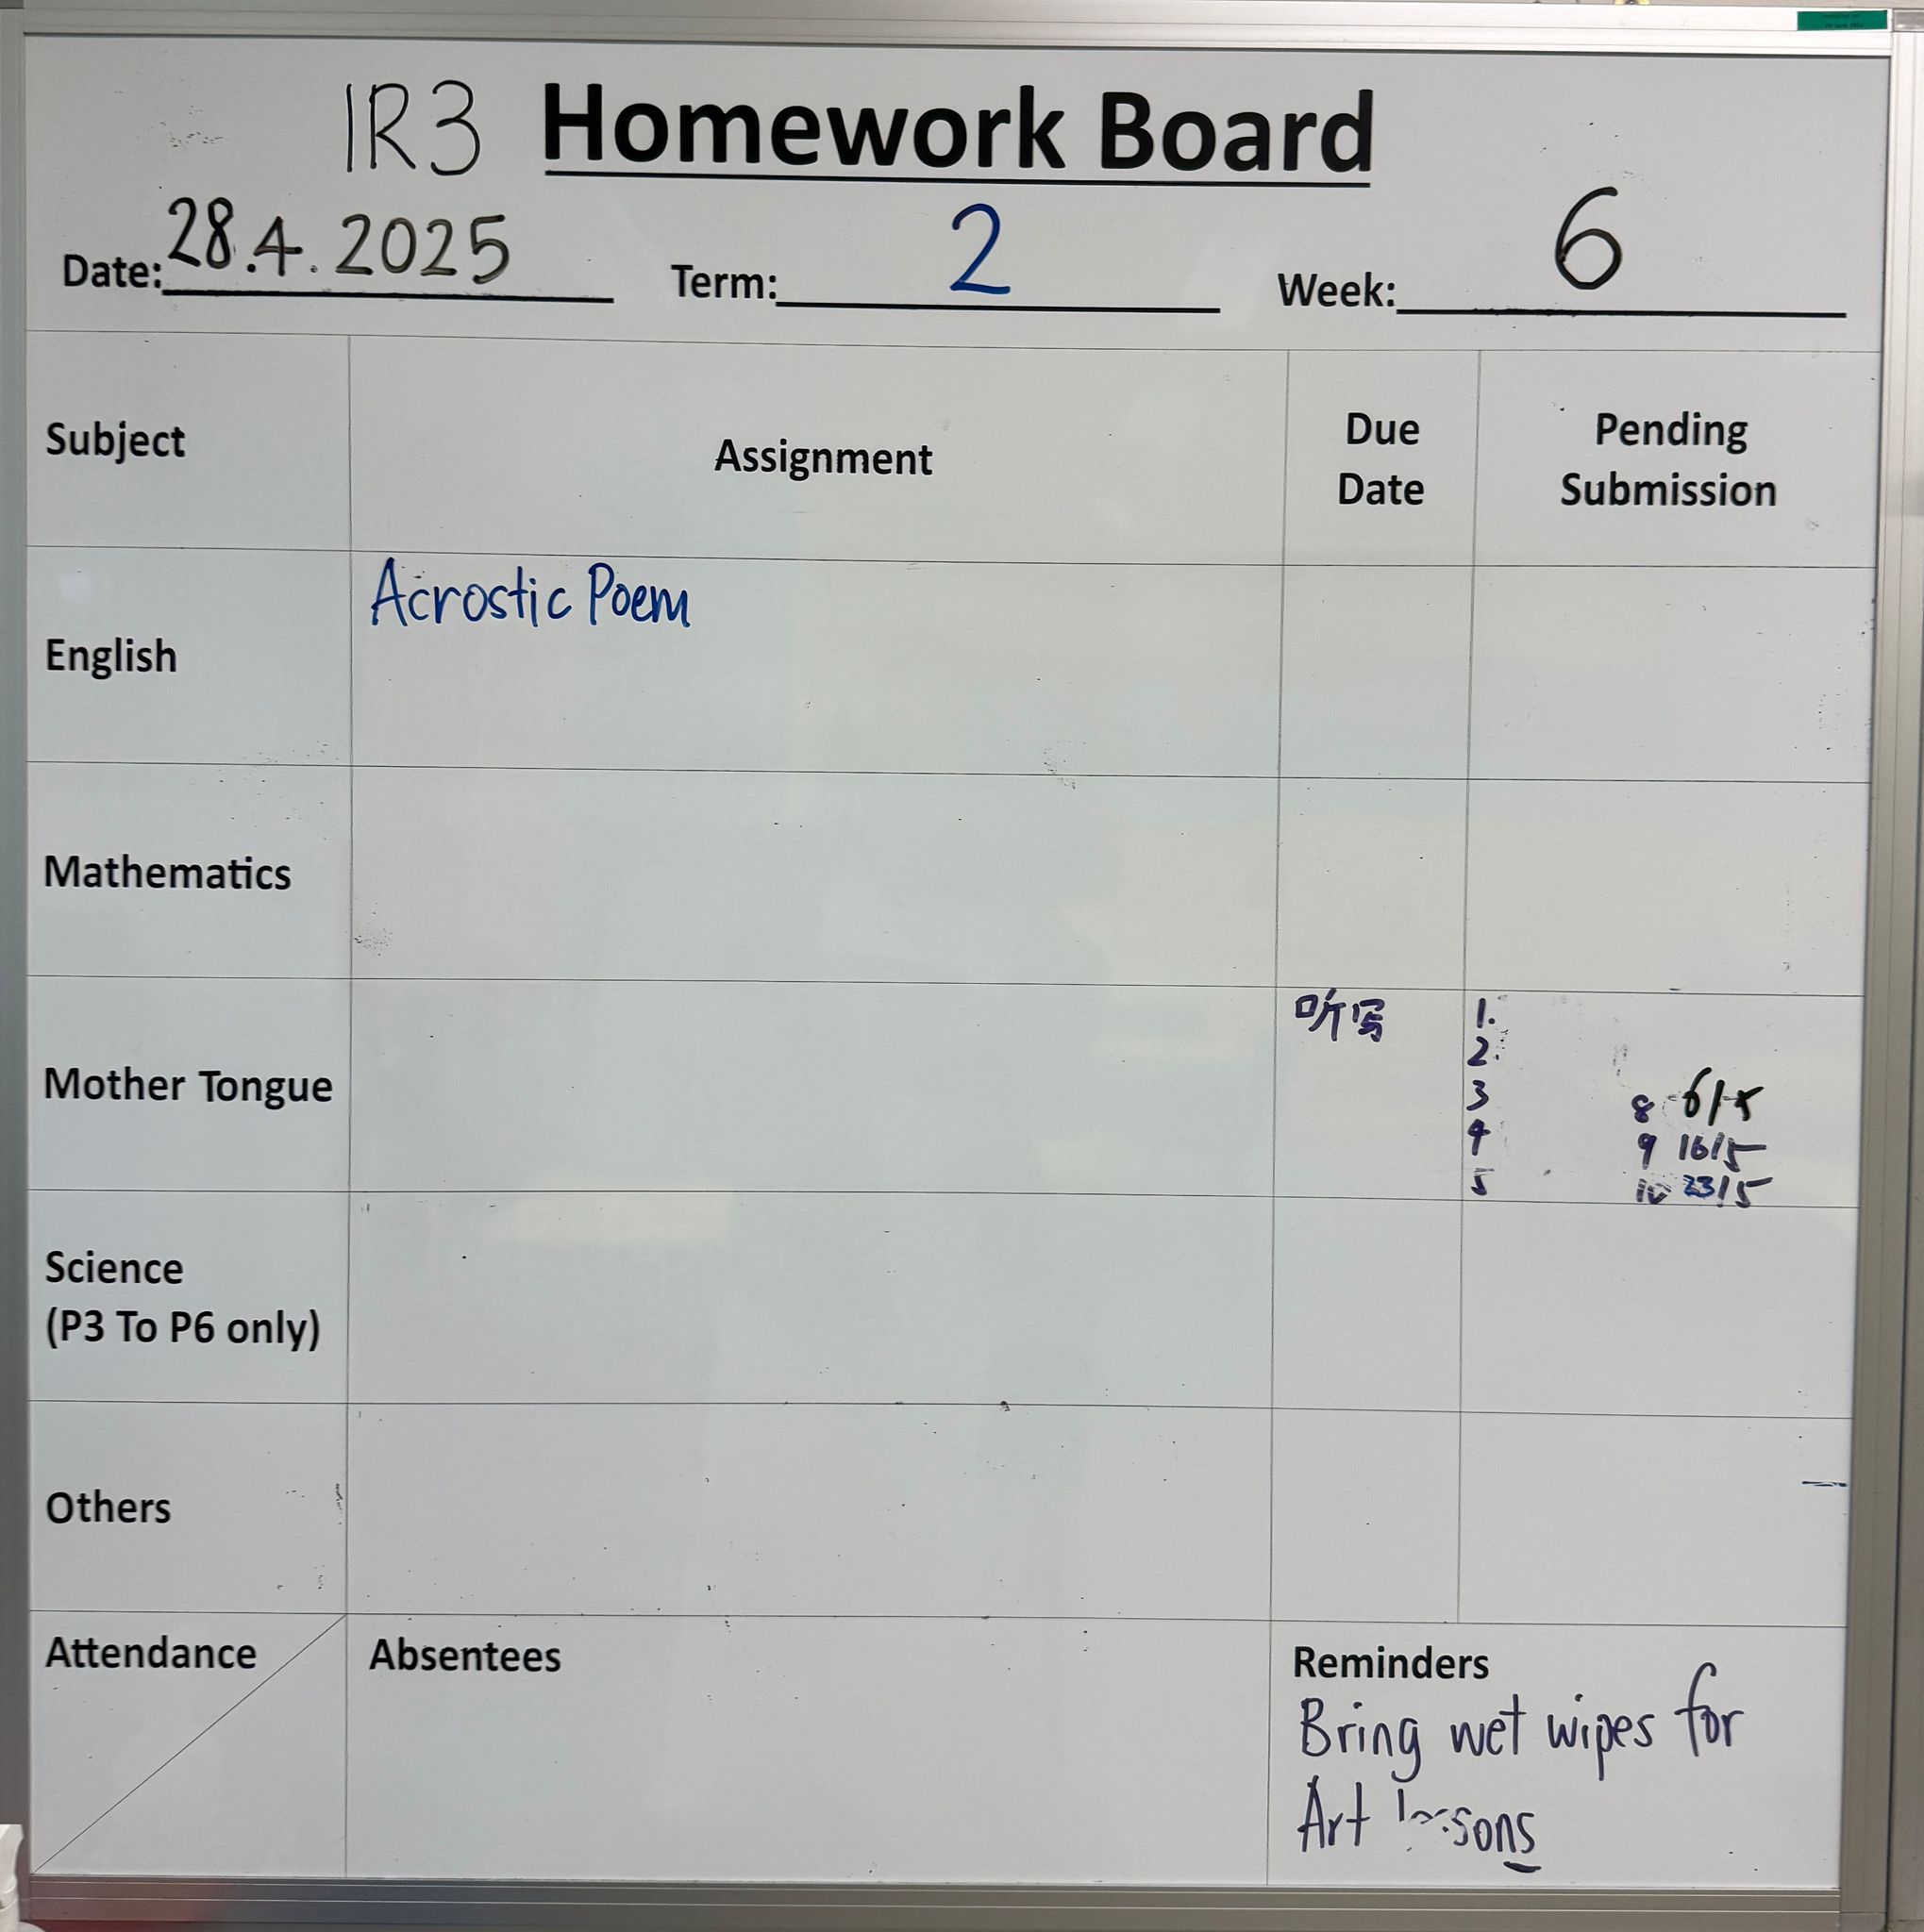 1R3 Homework Board
Date: 28.4.2025 Term: 2 Week: 6
Subject Assignment Due Date Pending Submission
English Acrostic Poem
Mathematics
Mother Tongue 听写
1.
2.
3 8 6/5
4 9 16/5
5 10 23/5
Science
(P3 To P6 only)
Others
Attendance Absentees Reminders
Bring wet wipes for
Art lessons